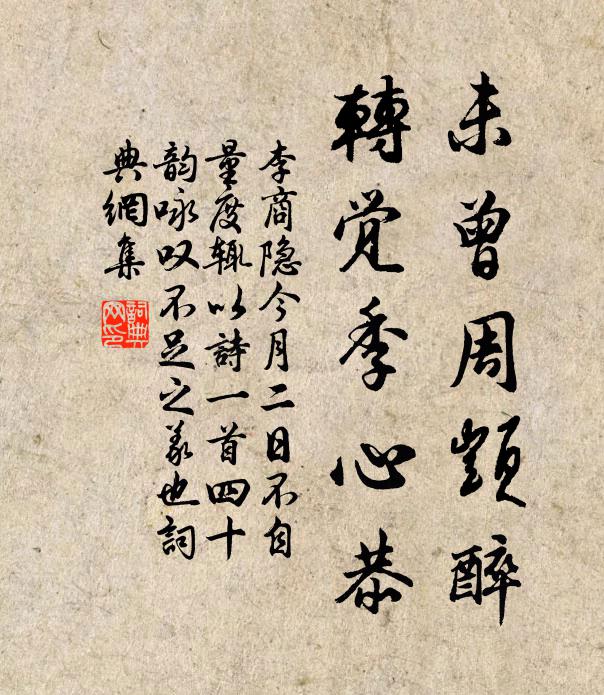 未曾周顗醉
轉觉季心恭
李商隐今月二日不自
量度辄以詩一首四十
韵咏叹不足之义也詞
典網集
詞典網印